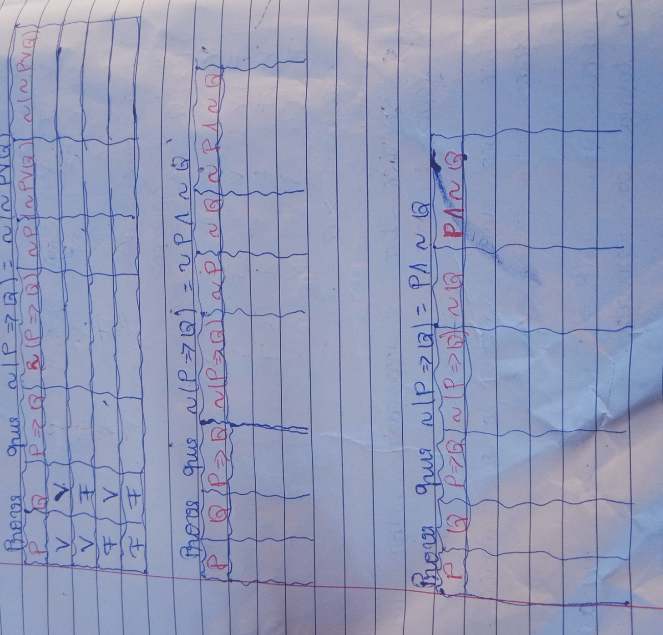 Prova que ~(P⇒Q) = ~(~PVQ)
P Q P⇒Q ~(P⇒Q) ~P (~PVQ) ~(~PVQ)
V V
V F
F V
F F
Prova que ~(P⇒Q) = ~P Λ ~Q
P Q P⇒Q ~(P⇒Q) ~P ~Q ~PΛ~Q
Prova que ~(P⇒Q) = PΛ~Q
P Q P⇒Q ~(P⇒Q) ~Q PΛ~Q